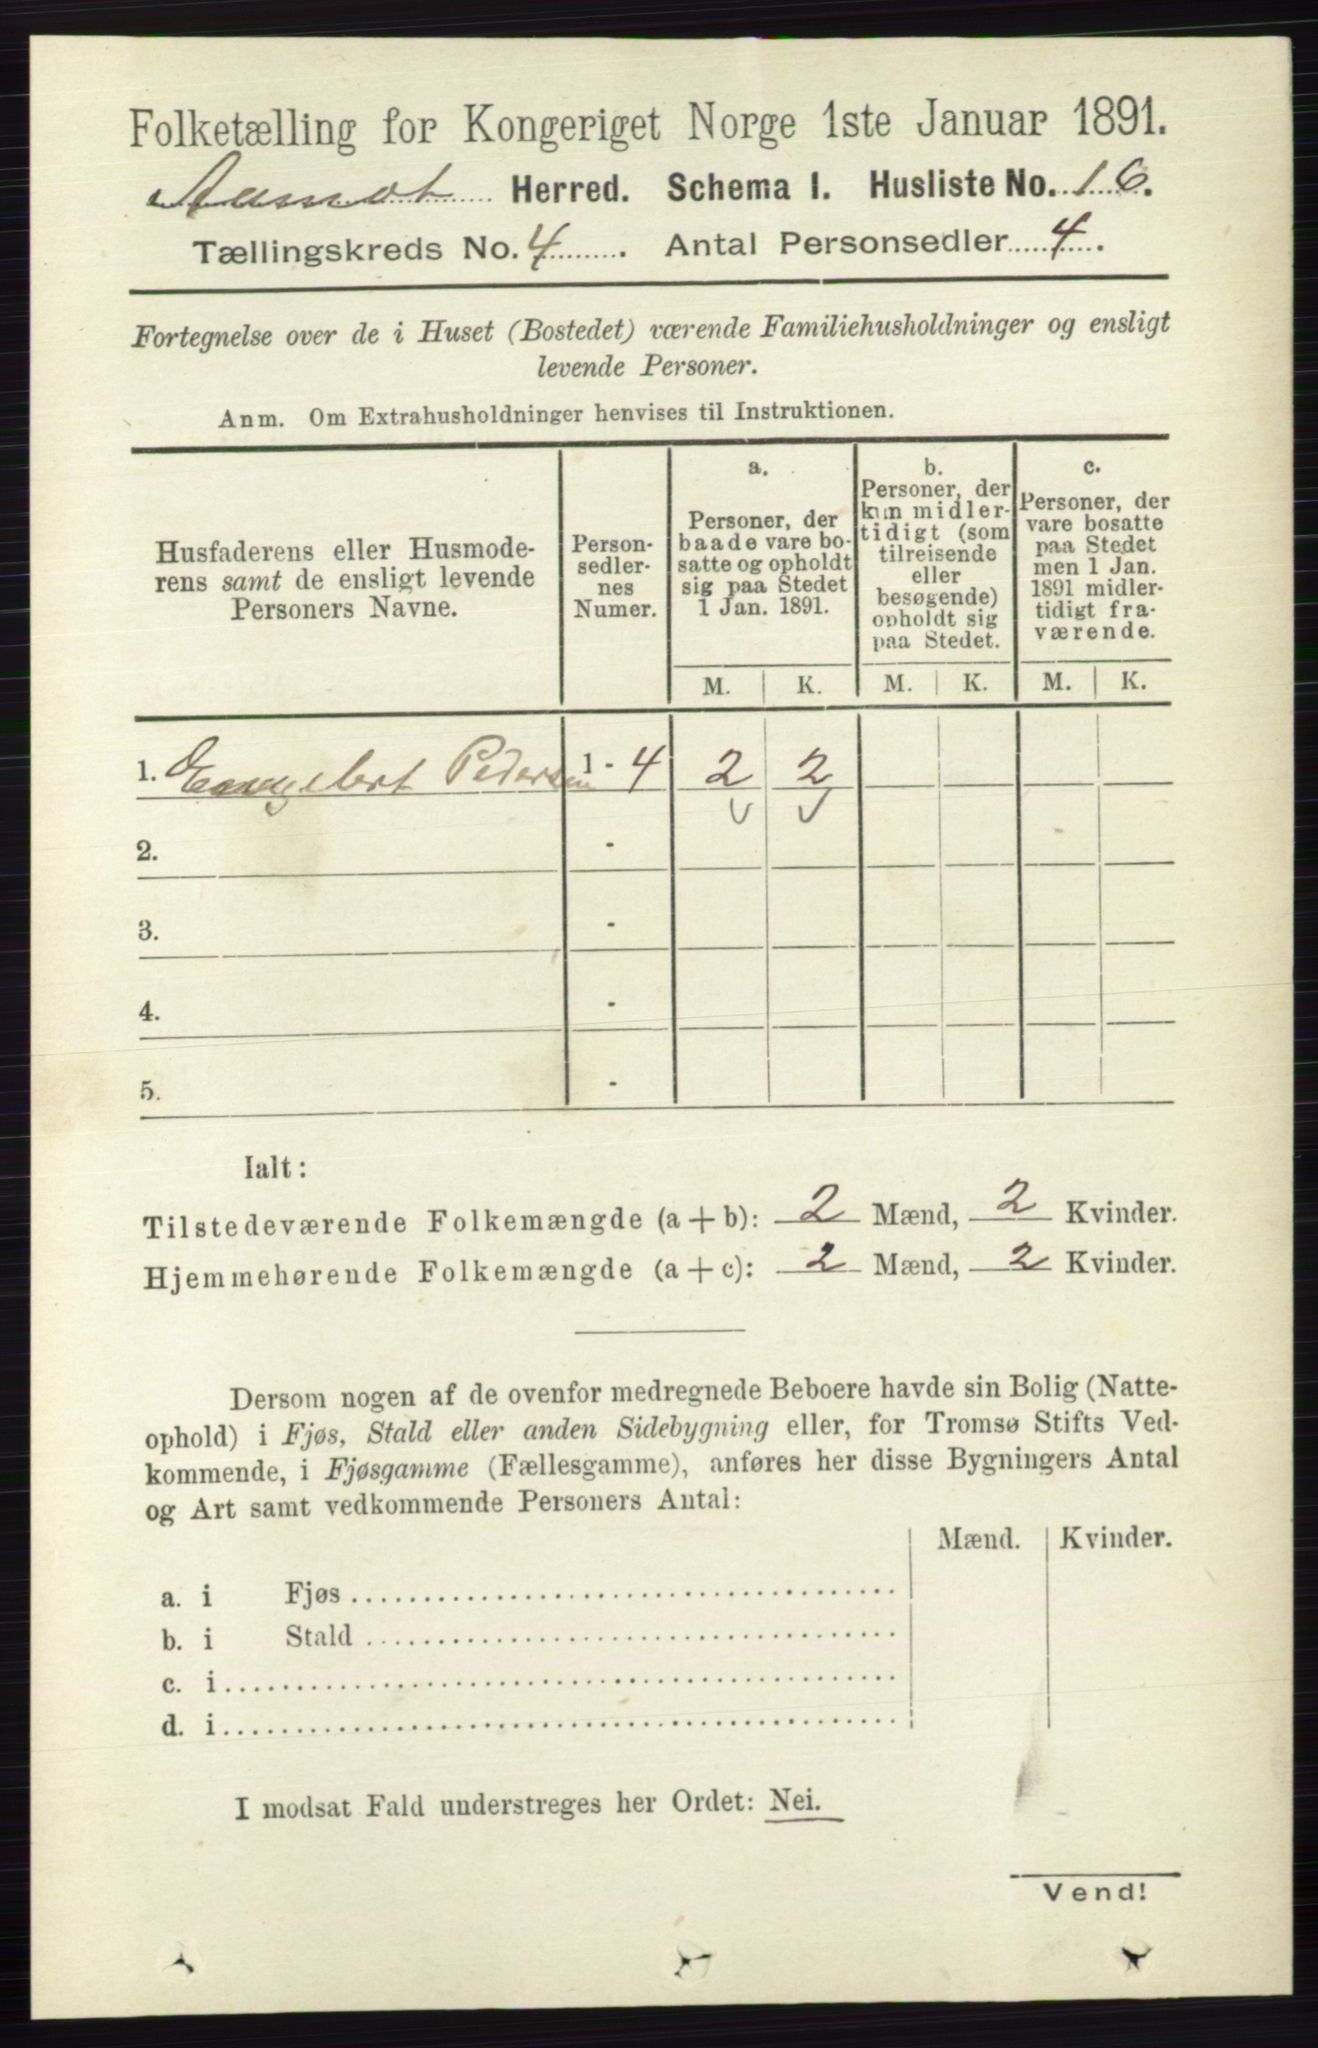 Folketælling for Kongeriget Norge 1ste Januar 1891.
Aamot Herred. Schema I. Husliste No. 16.
Tællingskreds No. 4. Antal Personsedler 4.
Fortegnelse over de i Huset (Bostedet) værende Familiehusholdninger og ensligt
levende Personer.
Anm. Om Extrahusholdninger henvises til Instruktionen.
Husfaderens eller Husmode-
rens samt de ensligt levende
Personers Navne.
Person-
sedler-
nes
Numer.
a.
Personer, der
baade vare bo-
satte og opholdt
sig paa Stedet
1 Jan. 1891.
b.
Personer, der
kun midler-
tidigt (som
tilreisende
eller
besøgende)
opholdt sig
paa Stedet.
c.
Personer, der
vare bosatte
paa Stedet
men 1 Jan.
1891 midler-
tidigt fra-
værende.
M. K. M. K. M. K.
1. Engebert Pedersen 1 - 4 2 2
2. -
3. -
4. -
5. -
Ialt:
Tilstedeværende Folkemængde (a + b): 2 Mænd, 2 Kvinder.
Hjemmehørende Folkemængde (a + c): 2 Mænd, 2 Kvinder.
Dersom nogen af de ovenfor medregnede Beboere havde sin Bolig (Natte-
ophold) i Fjøs, Stald eller anden Sidebygning eller, for Tromsø Stifts Ved-
kommende, i Fjøsgamme (Fællesgamme), anføres her disse Bygningers Antal
og Art samt vedkommende Personers Antal:
Mænd. Kvinder.
a. i Fjøs
b. i Stald
c. i
d. i
I modsat Fald understreges her Ordet: Nei.
Vend!